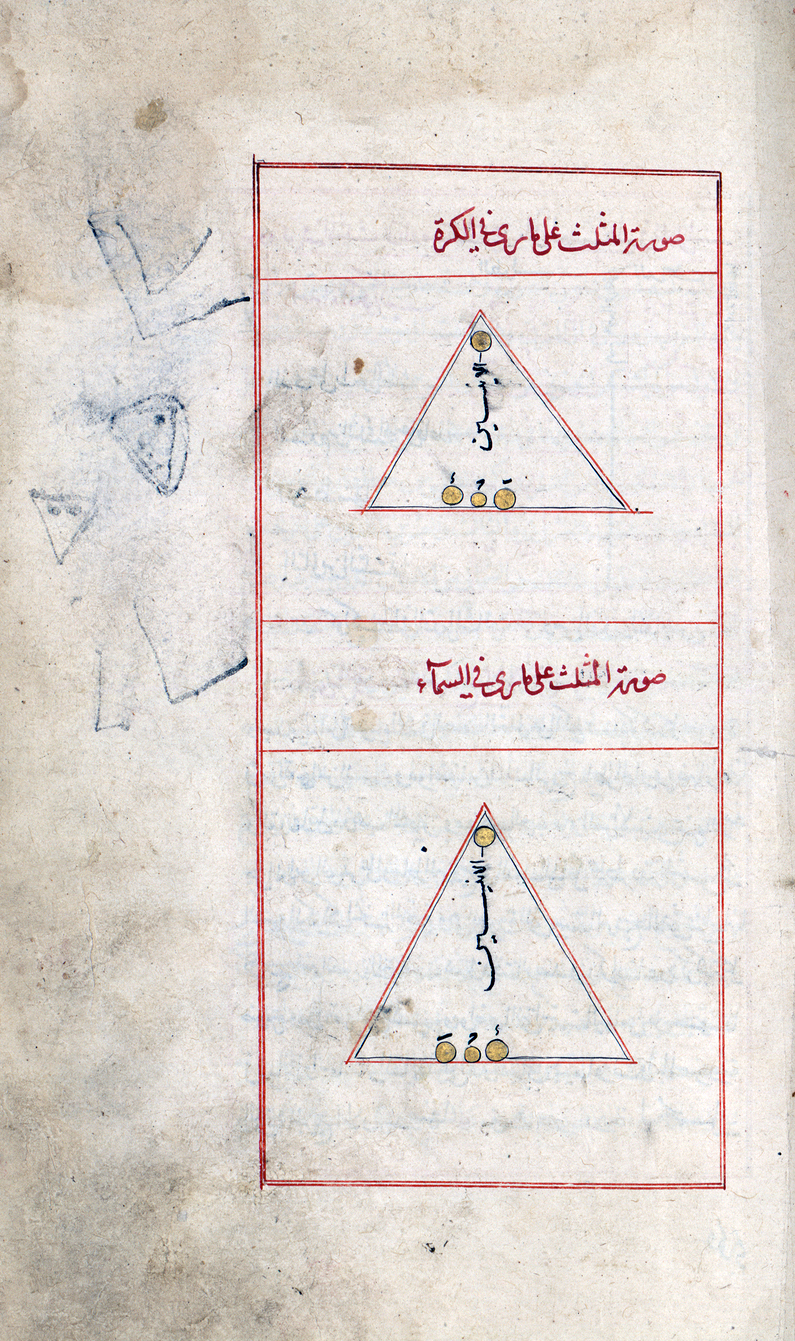 صورة المثلث على ما يرى في الكرة
الانيسين
صورة المثلث على ما يرى في السمآء
الانيسين